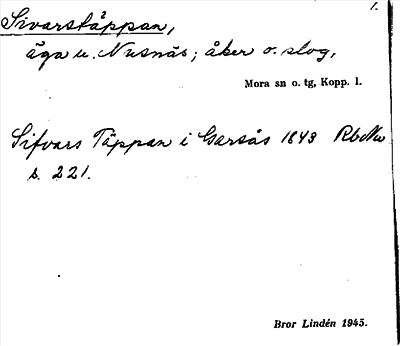 1.
Sivarstäppan,
äga u. Nusnäs; åker o. slog,
Mora sn o. tg, Kopp. l.
Sifvars Täppan i Garsås 1843
s. 221.
Bror Lindén 1945.